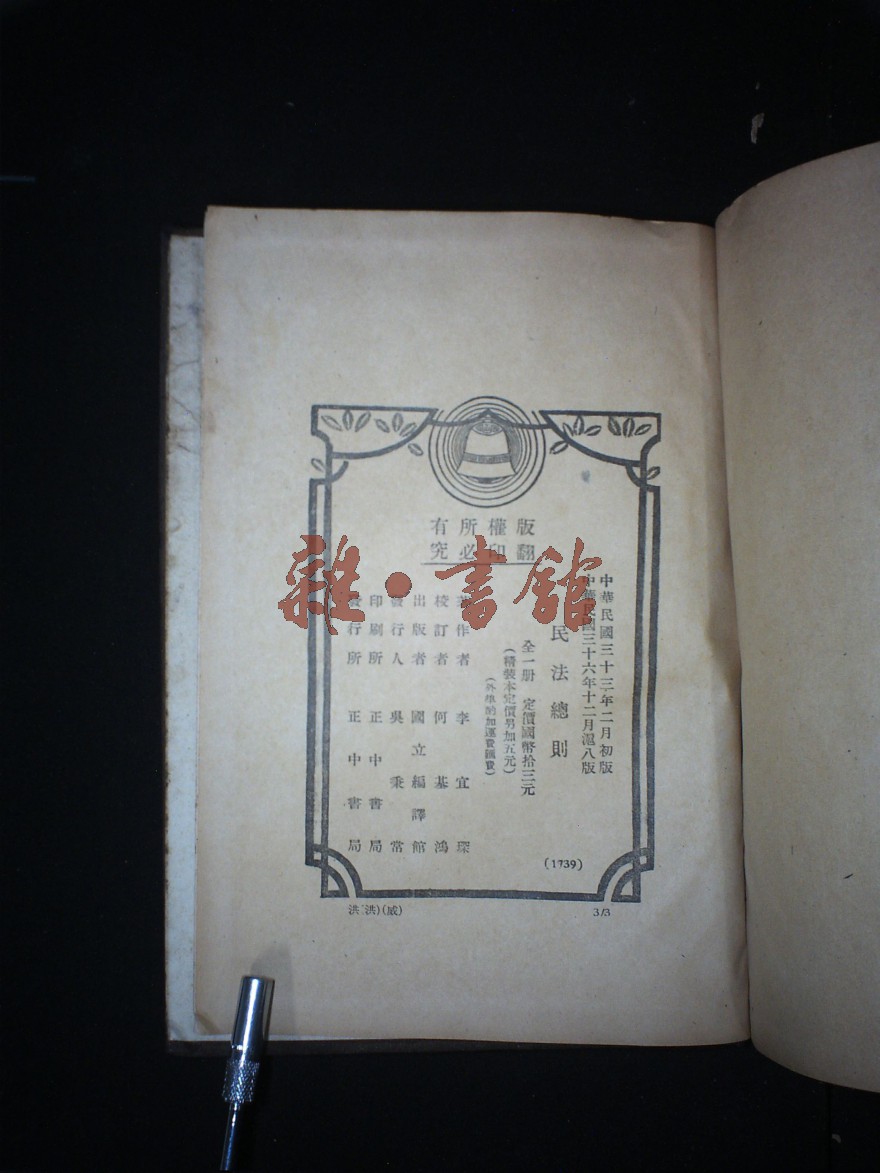 版權所有
翻印必究
中華民國三十三年二月初版
中華民國三十六年十二月滬八版
民法總則
全一册 定價國幣拾三元
(精裝本定價另加五元)
(外埠酌加運費匯費)
著作者 李宜琛
校訂者 何基鴻
出版者 國立編譯館
發行人 吳秉常
印刷所 正中書局
發行所 正中書局
(1739)
洪(洪)(威)
3/3
雜·書館